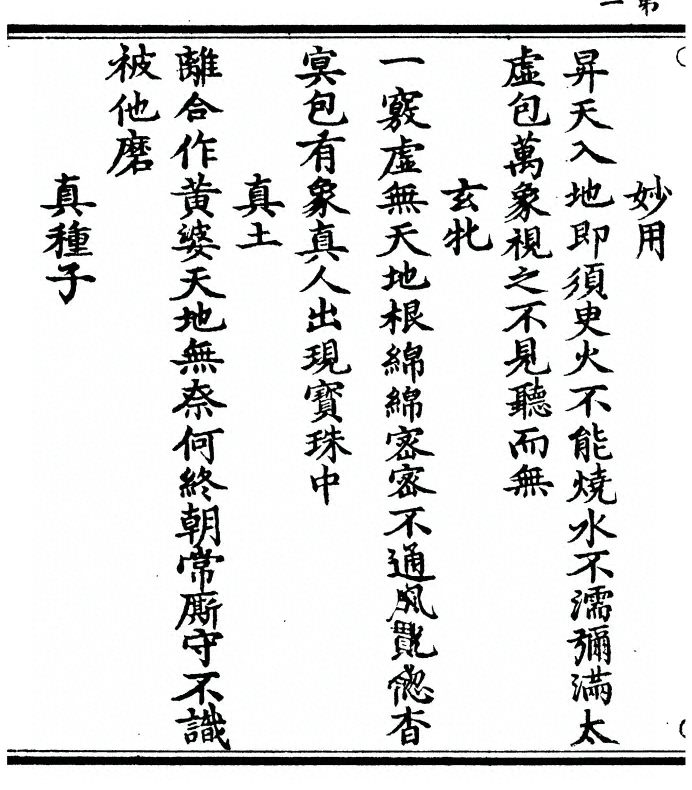 妙用
昇天入地即須臾火不能燒水不濡彌滿太
虛包萬象視之不見聽而無
玄牝
一竅虛無天地根綿綿密密不通風惚杳
冥包有象真人出現寶珠中
真土
離合作黃婆天地無奈何終朝常厮守不識
被他磨
真種子